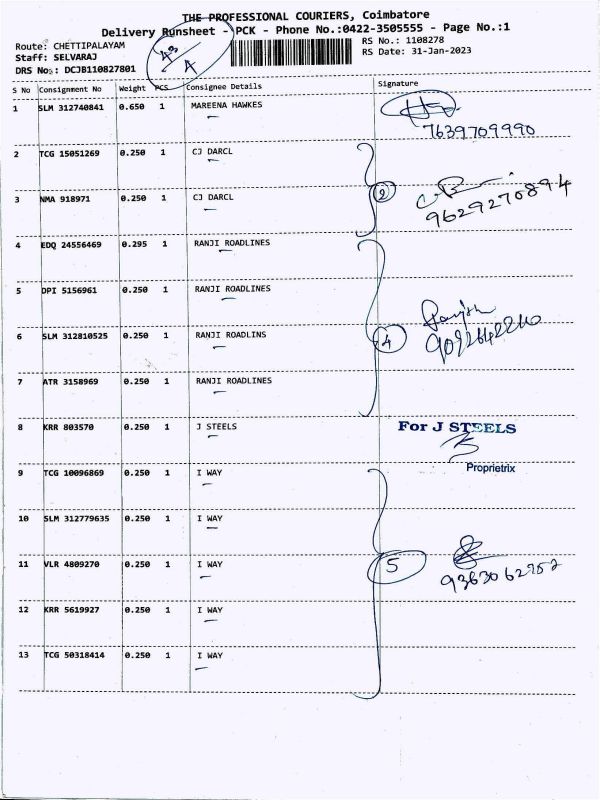 THE PROFESSIONAL COURIERS, Coimbatore
Delivery Runsheet - PCK - Phone No.:0422-3505555 - Page No.:1
Route: CHETTIPALAYAM
Staff: SELVARAJ
DRS No.: DCJB110827801
RS No.: 1108278
RS Date: 31-Jan-2023
S No Consignment No Weight PCS Consignee Details Signature
1 SLM 312740841 0.650 1 MAREENA HAWKES
7639709990
2 TCG 15051269 0.250 1 CJ DARCL
3 NMA 918971 0.250 1 CJ DARCL
2
9629270894
4 EDQ 24556469 0.295 1 RANJI ROADLINES
5 DPI 5156961 0.250 1 RANJI ROADLINES
6 SLM 312810525 0.250 1 RANJI ROADLINS
4
7 ATR 3158969 0.250 1 RANJI ROADLINES
8 KRR 803570 0.250 1 J STEELS
For J STEELS
Proprietrix
9 TCG 10096869 0.250 1 I WAY
10 SLM 312779635 0.250 1 I WAY
11 VLR 4809270 0.250 1 I WAY
5
12 KRR 5619927 0.250 1 I WAY
13 TCG 50318414 0.250 1 I WAY